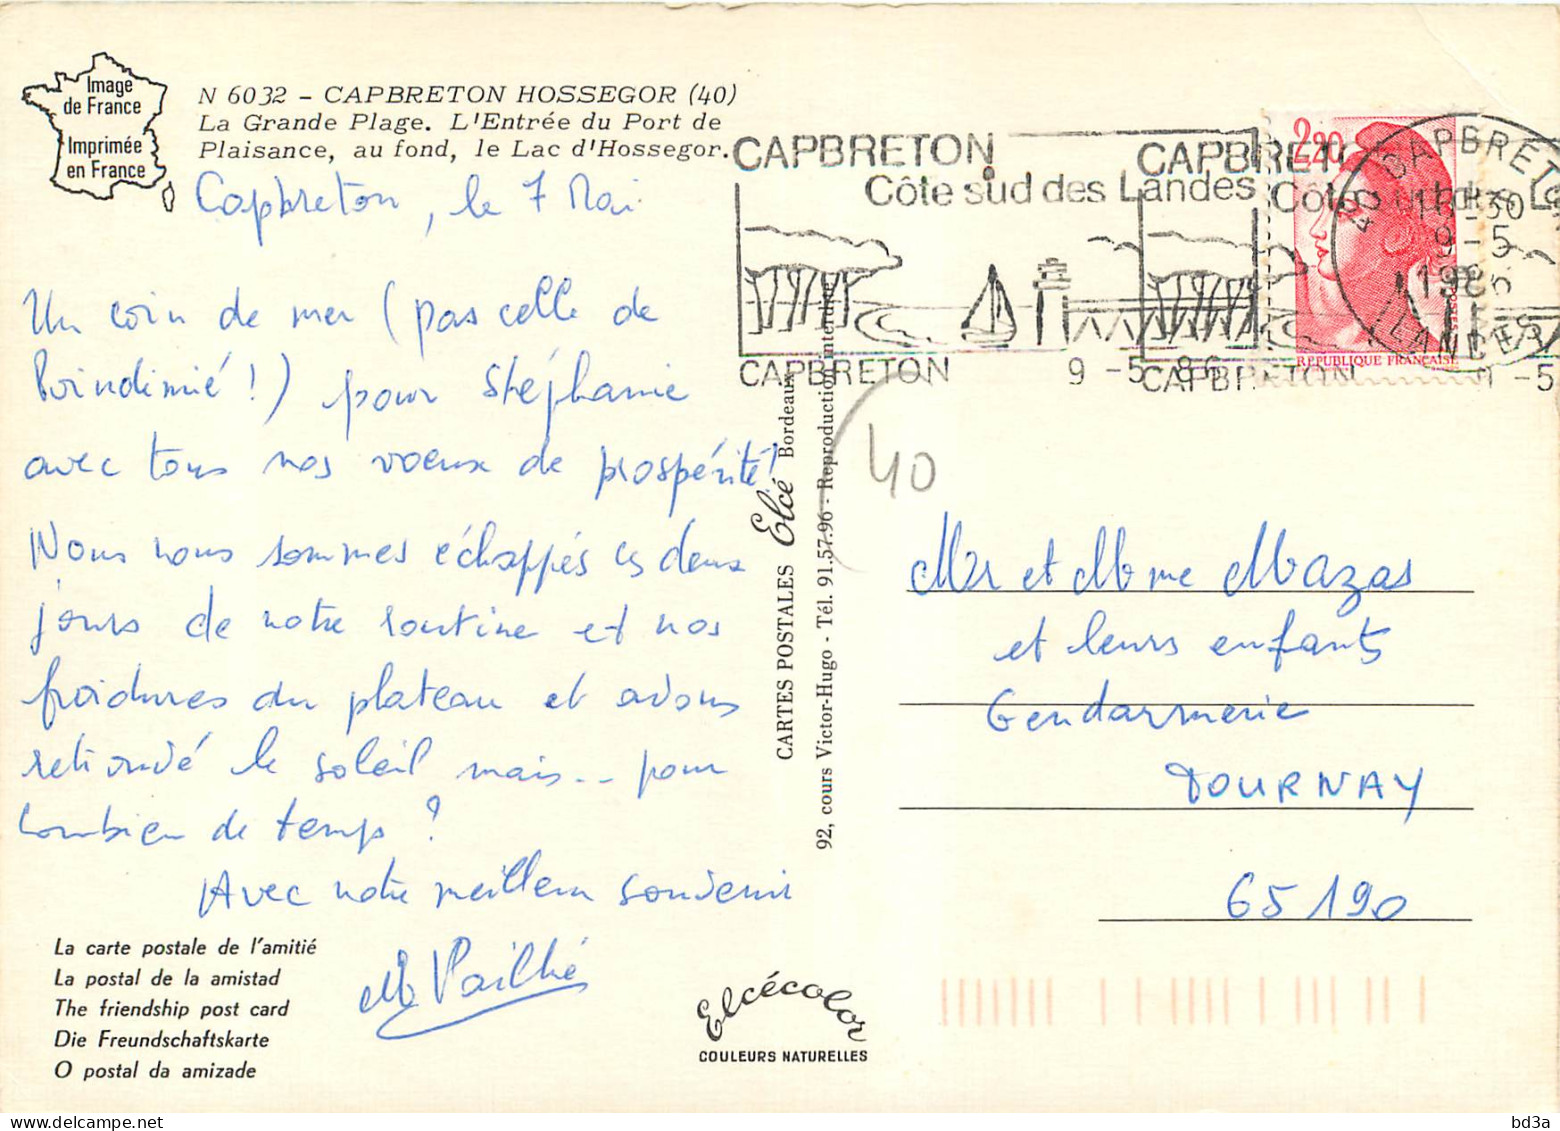 Image
de France
Imprimée
en France
N 6032 - CAPBRETON HOSSEGOR (40)
La Grande Plage. L'Entrée du Port de
Plaisance, au fond, le Lac d'Hossegor.
Capbreton, le 7 Mai
Un coin de mer (pas celle de
!) pour Stéphanie
avec tous nos voeux de prospérité!
Nous nous sommes échappés ces deux
jours de notre routine et nos
froidures du plateau et avons
retrouvé le soleil mais... pour
combien de temps ?
Avec notre meilleur souvenir
La carte postale de l'amitié
La postal de la amistad
The friendship post card
Die Freundschaftskarte
O postal da amizade
CARTES POSTALES Elcé Bordeaux
92, cours Victor-Hugo - Tél. 91.57.96 - Reproduction interdite
Elcécolor
COULEURS NATURELLES
CAPBRETON
Côte sud des Landes
CAPBRETON 9-5 86
CAPBRET
Côte
CAPBRETON 9-5
2,20
POSTES
REPUBLIQUE FRANÇAISE
40 CAPBRETON
9-5
1986
LANDES
40
Mr et Mme Mazas
et leurs enfants
Gendarmerie
TOURNAY
65190